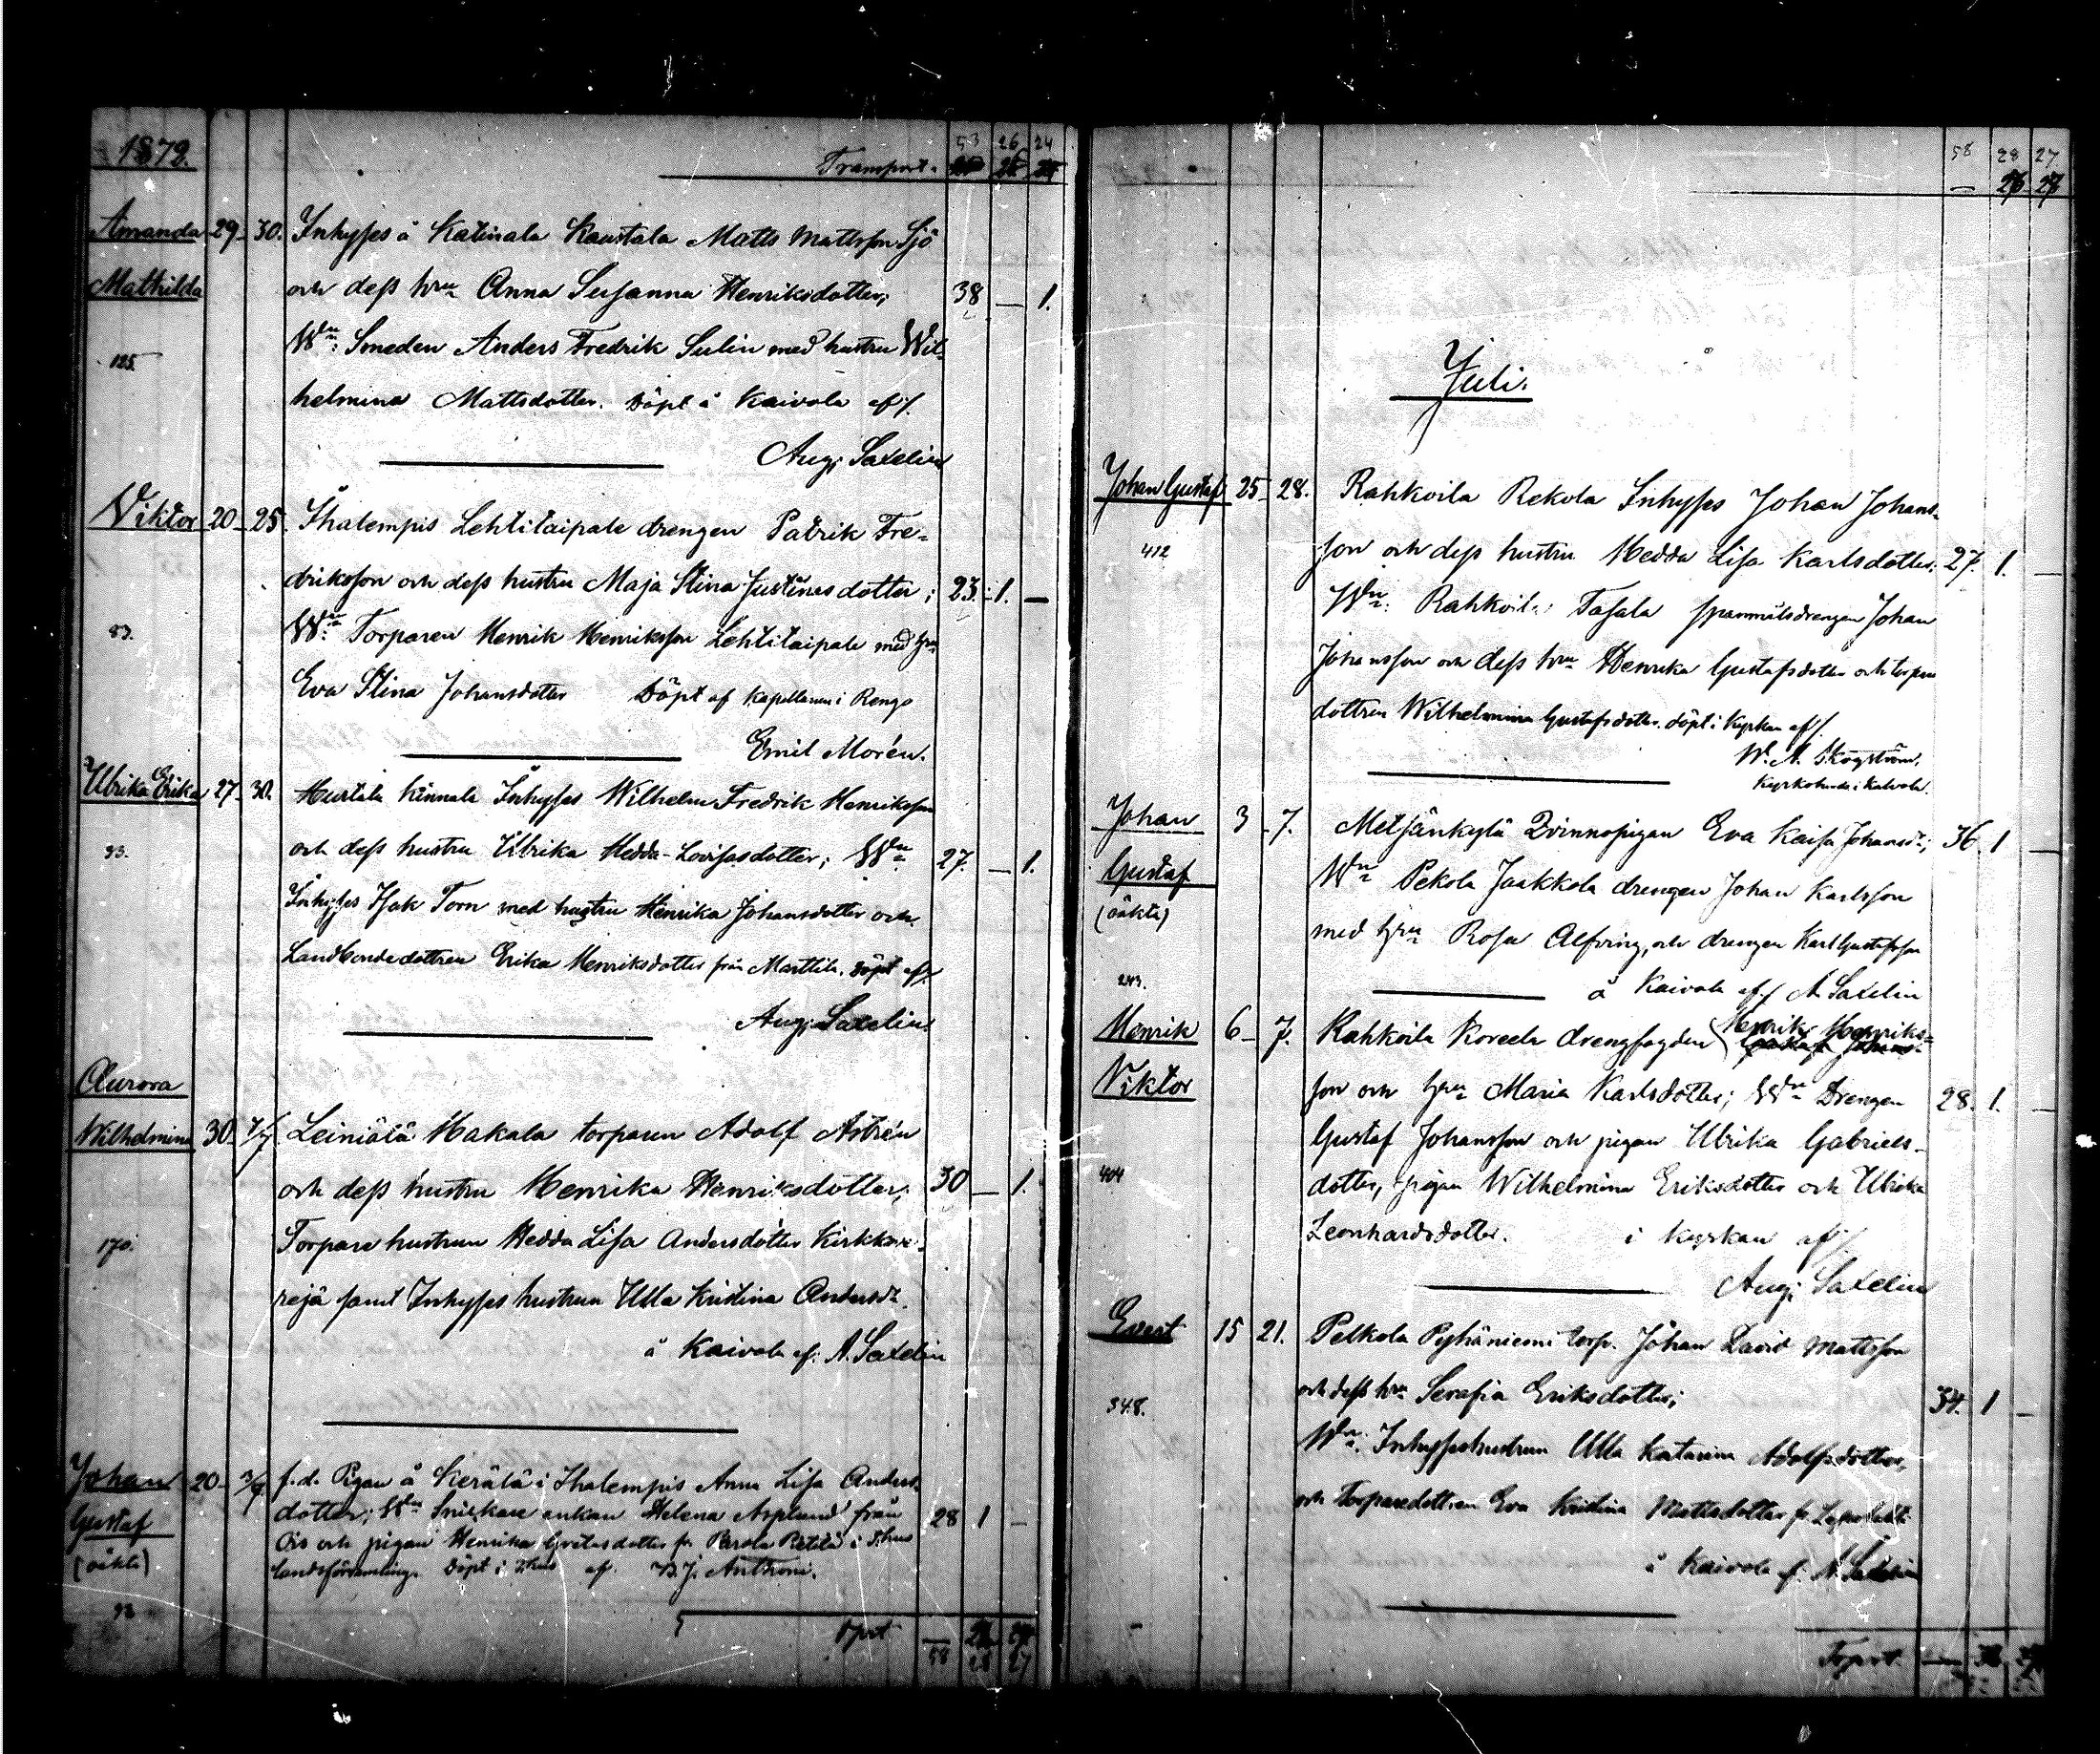 1879.
53 26 24
Transport.
Amanda 29 30. Inhyses å Katinala Kaustala Matts Mattsson Sjö
Mathilda och dess hru Anna Susanna Henriksdotter; 38 — 1.
Wdn: Smeden Anders Fredrik Sulin med hustru Wil-
125.
helmina Mattsdotter. Döpt å Kaivola af /.
Aug. Saxelin
Viktor 20 25. Ihalempis Lehtitaipale drengen Patrik Fre-
driksson och dess hustru Maja Stina Justinasdotter; 23. 1. —
83.
Wdn: Torparen Henrik Henriksson Lehtitaipale med hru
Eva Stina Johansdotter Döpt af Kapellanen i Rengo
Emil Morén.
Ulrika Erika 27 30. Hurtala Kinnala Inhyses Wilhelm Fredrik Henriksson
och dess hustru Ulrika Hedda-Lovisasdotter; Wdn 27. — 1.
93.
Inhyses Isak Torn med hustru Henrika Johansdotter och
Landbondedottren Erika Henriksdotter från Marttila. Döpt af
Aug. Saxelin
Aurora
Wilhelmina 30 7/7 Leiniälä Hakala torparen Adolf Astrén
och dess hustru Henrika Henriksdotter; 30 — 1.
Torpare hustrun Hedda Lisa Andersdotter Kirkkove-
170.
rejä samt Inhyses hustrun Ulla Kristina Andersdr.
å Kaivola af: A. Saxelin
Johan 20 3/9 f.d. Pigan å Kerälä i Ihalempis Anna Lisa Anders
Gustaf dotter; Wdn Snickare enkan Helena Asplund från 28 1 —
(oäkta) och pigan Henrika
landsförsamling. Döpt i af B. J. Anthoni.
93
58 28 27
58 28 27
— 26 27
Juli.
Johan Gustaf 25 28. Rahkoila Rekola Inhyses Johan Johans-
412
son och dess hustru Hedda Lisa Karlsdotter. 27. 1. —
Wdn: Rahkoila Tasala spanmålsdrengen Johan
Johansson och dess hru Henrika Gustafsdotter och torpare
dottren Wilhelmina Gustafsdotter. döpt i Kyrkan af /.
W. A. Skogström,
Kyrkoherde i Kalvola.
Johan 3 7. Metsänkylä Qvinnopigan Eva Kaisa Johansdr; 36. 1 —
Gustaf Wdn Pekola Jaakkola drengen Johan Karlsson
(oäkta)
med hru Rosa Alfving, och drengen Karl Gustafsson
243.
å Kaivola af / A. Saxelin
Henrik 6 7. Rahkoila Koreela drengfogden Henrik Henriks-
Viktor son och hru Maria Karlsdotter; Wdn Drengen 28. 1. —
Gustaf Johansson och pigan Ulrika Gabriels-
404 dotter, pigan Wilhelmina Eriksdotter och Ulrika
Leonhardsdotter. i Kyrkan af /
Aug. Saxelin
Evert 15 21. Pelkola Pyhäniemi torp. Johan David Mattsson
348. och dess hru Serafia Eriksdotter; 34. 1 —
Wdn. Inhyseshustrun Ulla Katarina Adolfsdotter,
och Torparedottren Eva Kristina Mattsdotter
å Kaivola af: A. Saxelin
Trprt.